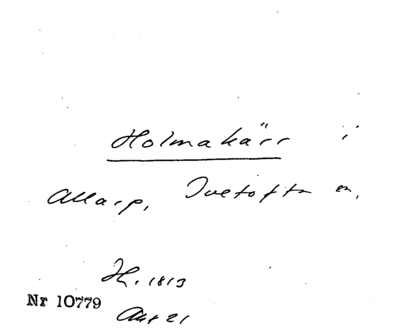 Holmakärr i
Allarp, Ivetofta sn.
H. 1813
Nr 10779
Akt 21